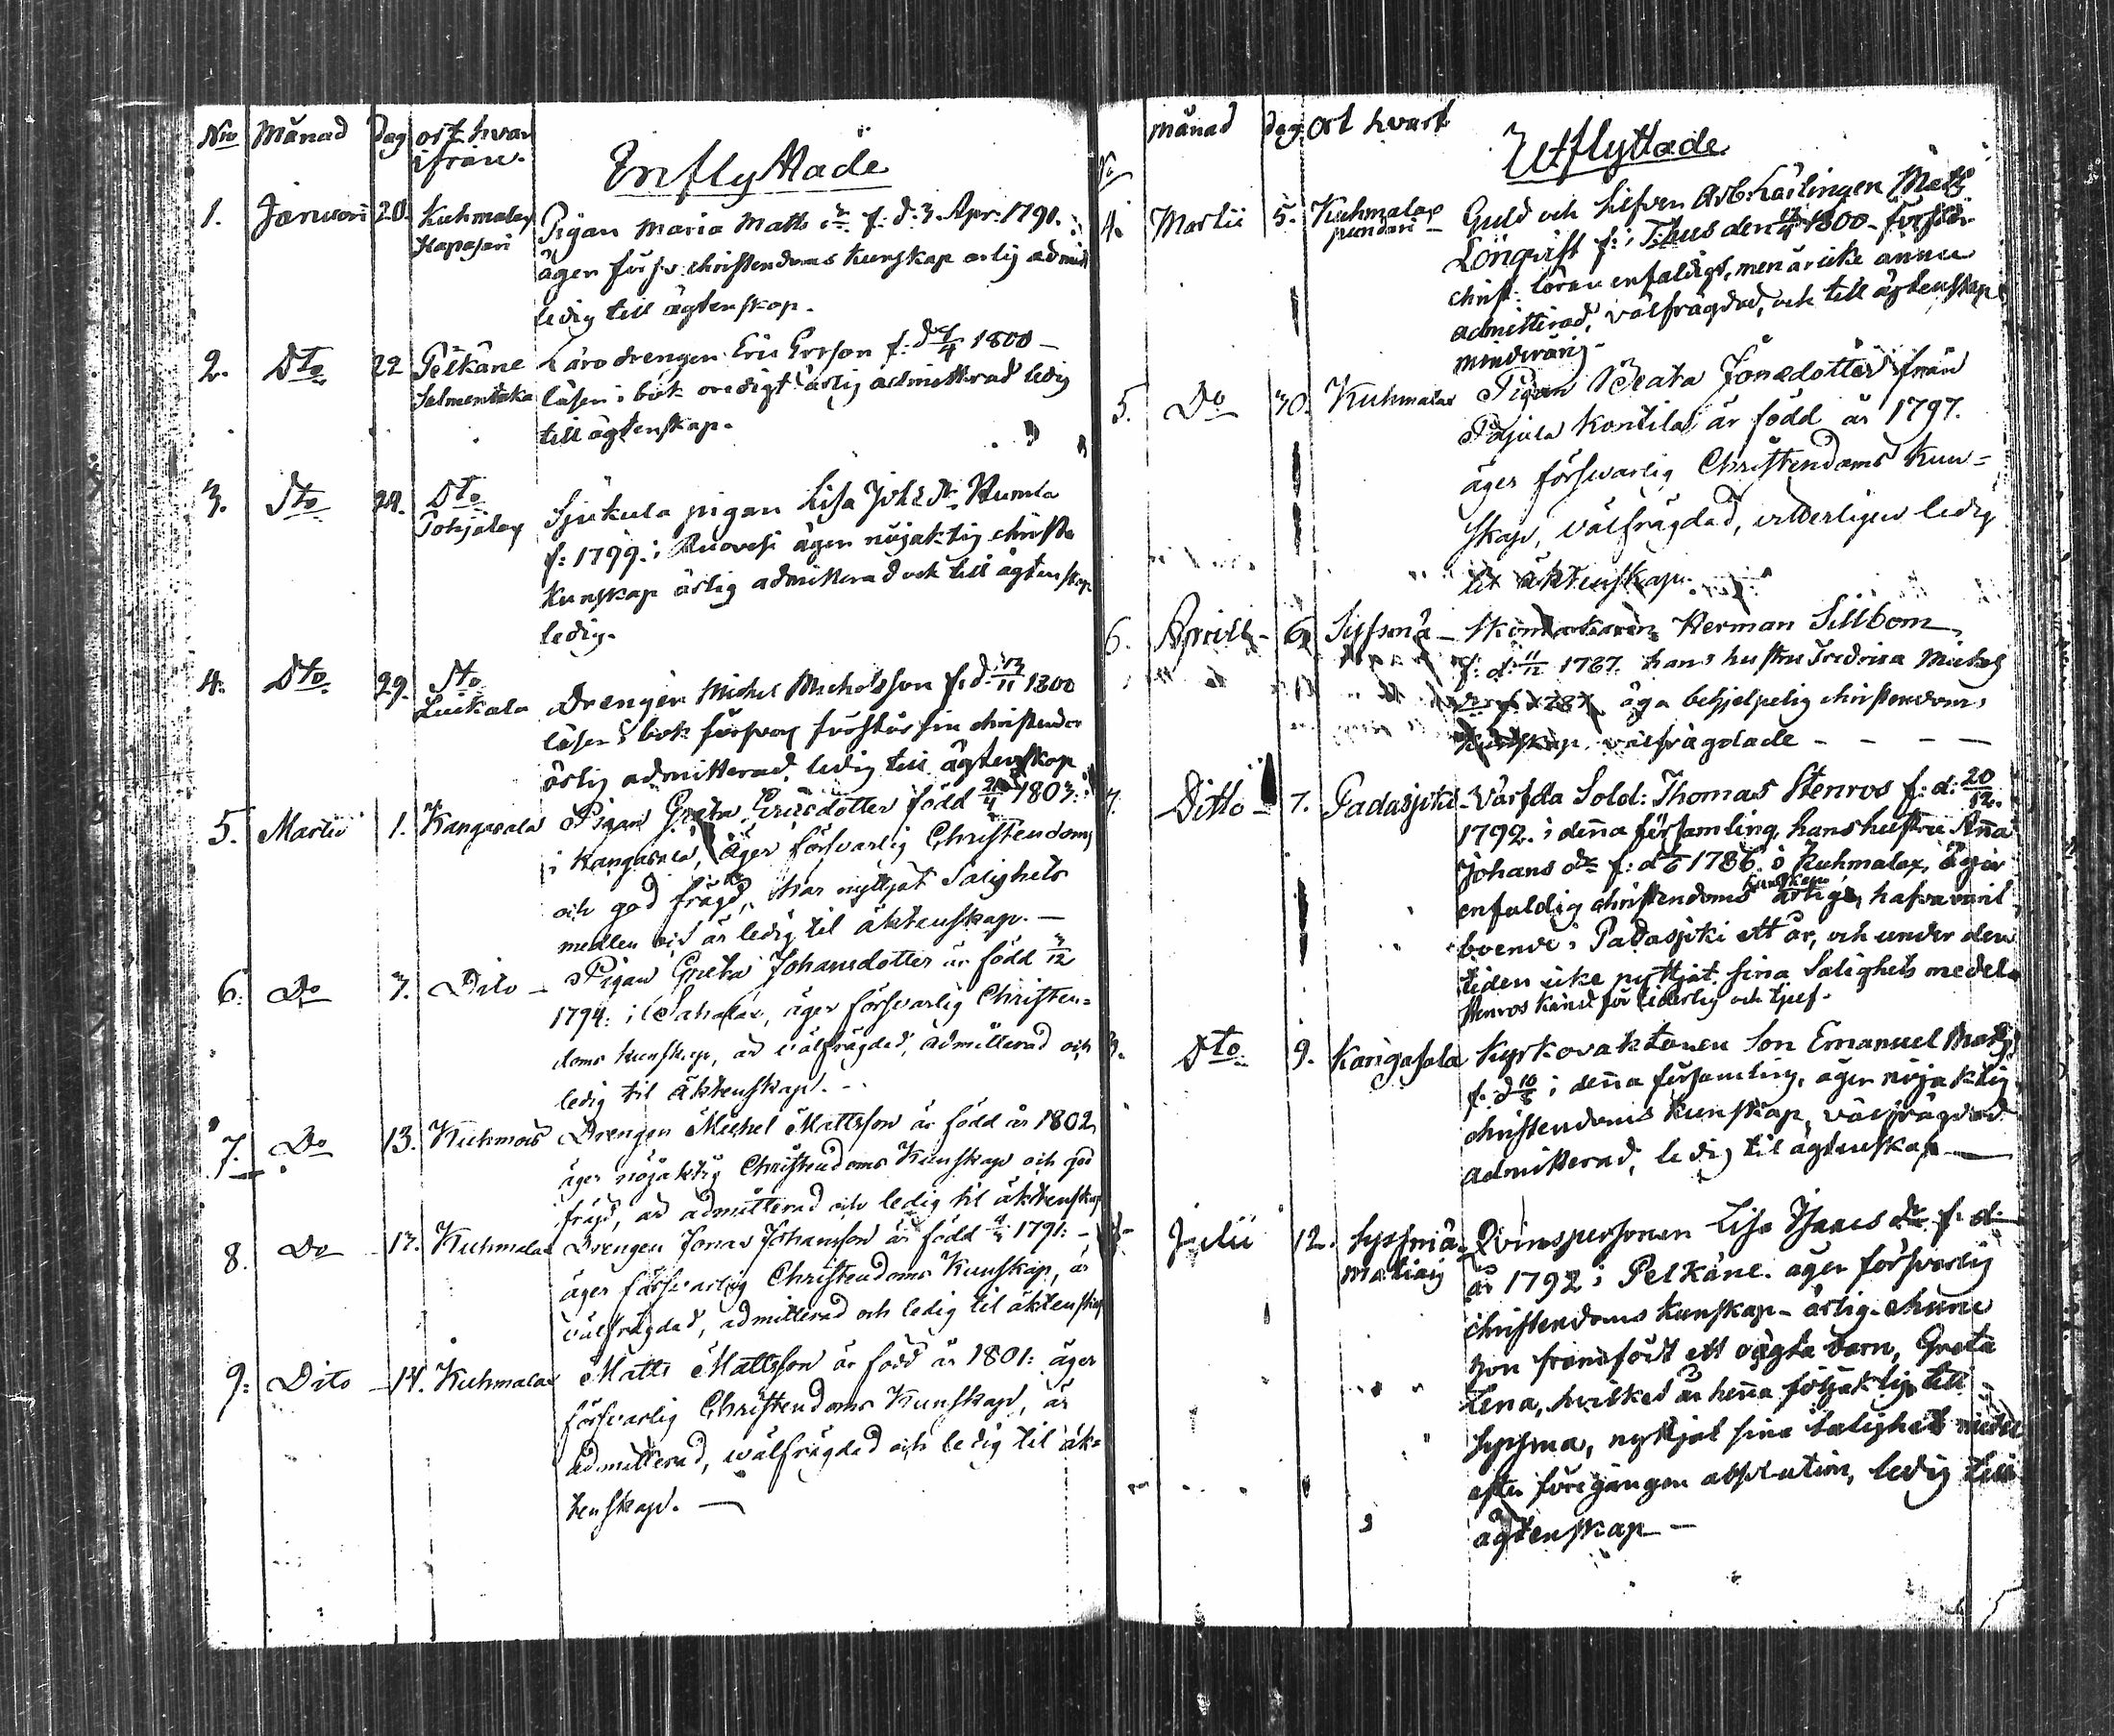 No Månad Dag ort hvar
ifrån.
Inflyttade
1. Januari 20. Kuhmalax Pigan Maria Matts dr f. d. 3. Apr. 1790.
Hapasari äger försv: christendoms kunskap ärlig admitt
ledig till ägtenskap.
2. Dto 22 Pelkäne Lärodrengen Eric Ersson f: d 1800
Salmentaka läser i bok ärlig admitterad ledig
till ägtenskap.
3. Dto 29. Dto Sjukula pigan Lisa Joh: dr Humla
Pohjalax f: 1799. i Ruovesi äger nöjaktig christe
kunskap ärlig admitterad och till ägtenskap
ledig.
4. Dto 29. Dto Drengen Michel Michelsson f. d. 13/11 1800
Luikala läser i bok försvarl förstår sin christendom
ärlig admitterad ledig till ägtenskap
5. Martii 1. Kangasala Pigan Greta Ericsdotter född 1803:
i Kangasala, äger försvarlig Christendoms
och god frägd, har nyttjat Salighets
medlen och är ledig til äktenskap. —
6. Do 7. Dito — Pigan Greta Johansdotter är född
1794: i Sahalax, äger försvarlig Christen=
doms kunskap, är välfrägdad, admitterad och
ledig til äktenskap.
7. Do 13. Kuhmois Drengen Michel Mattsson är född år 1802,
äger nöjaktig Christendoms Kunskap och god
frägd, är admitterad och ledig til äktenskap
8. Do 17. Kuhmalax Drengen Jonas Johansson är född 1791: —
äger försvarlig Christendoms Kunskap, är
välfrägdad, admitterad och ledig til äktenskap
9: Dito — 14. Kuhmalax Matts Mattsson är född år 1801: äger
försvarlig Christendoms Kunskap, är
admitterad, wälfrägdad och ledig til äk=
tenskap. —
No månad dag Ort hvart
Utflyttade
4. Martii 5. Kuhmalax Guld och Silfver Arb: Lärlingen Matts
Pundari Lönqvist f: i T:hus den 1800. förstår
christ: läran enfaldigt, men är icke ännu
admitterad, välfrägdad, och till ägtenskap
minderårig.
5. Do 30. Kuhmalax Pigan Beata Jonædotter från
Pajula Kontila är född år 1797.
äger försvarlig Christendoms Kun=
skap, välfrägdad, ledig
til äktenskap.
6. Aprill — 6 Syssmä — Skomakaren Herman Sillbom
f: d: 11/12 1767. hans hustru Fredrica Michels
äga behjelpelig christendoms
kunskap, välfrägdade — — — —
7. Ditto — 7. Padasjoki — Värfda Sold: Thomas Stenros f: d: 20/12.
1792. i denna församling, hans hustru Anna
Johans dr f: d 1786. i Kuhmalax, äger
enfaldig christendoms kunskap ärliga, hafva varit
boende i Padasjoki ett år, och under den
tiden icke nyttjat sina Salighets medel.
Stenros känd för liderlig och tjuf.
Dto 9. Kangasala Kyrkovaktaren Son Emanuel Matts
f: d i denna församling, äger nöjaktig
christendoms kunskap, välfrägdad
admitterad, ledig til ägtenskap —
Julii 12. Syssmä Qvinspersonen Lisa Isaacs dr f: d:
år 1792 i Pelkäne. äger försvarlig
christendoms kunskap — ärlig
hon framfödt ett oägta barn, Greta
Lena, hvilket är henne följaktig till
Syssma, nyttjat sina salighets medel
efter föregången absolution, ledig till
ägtenskap —